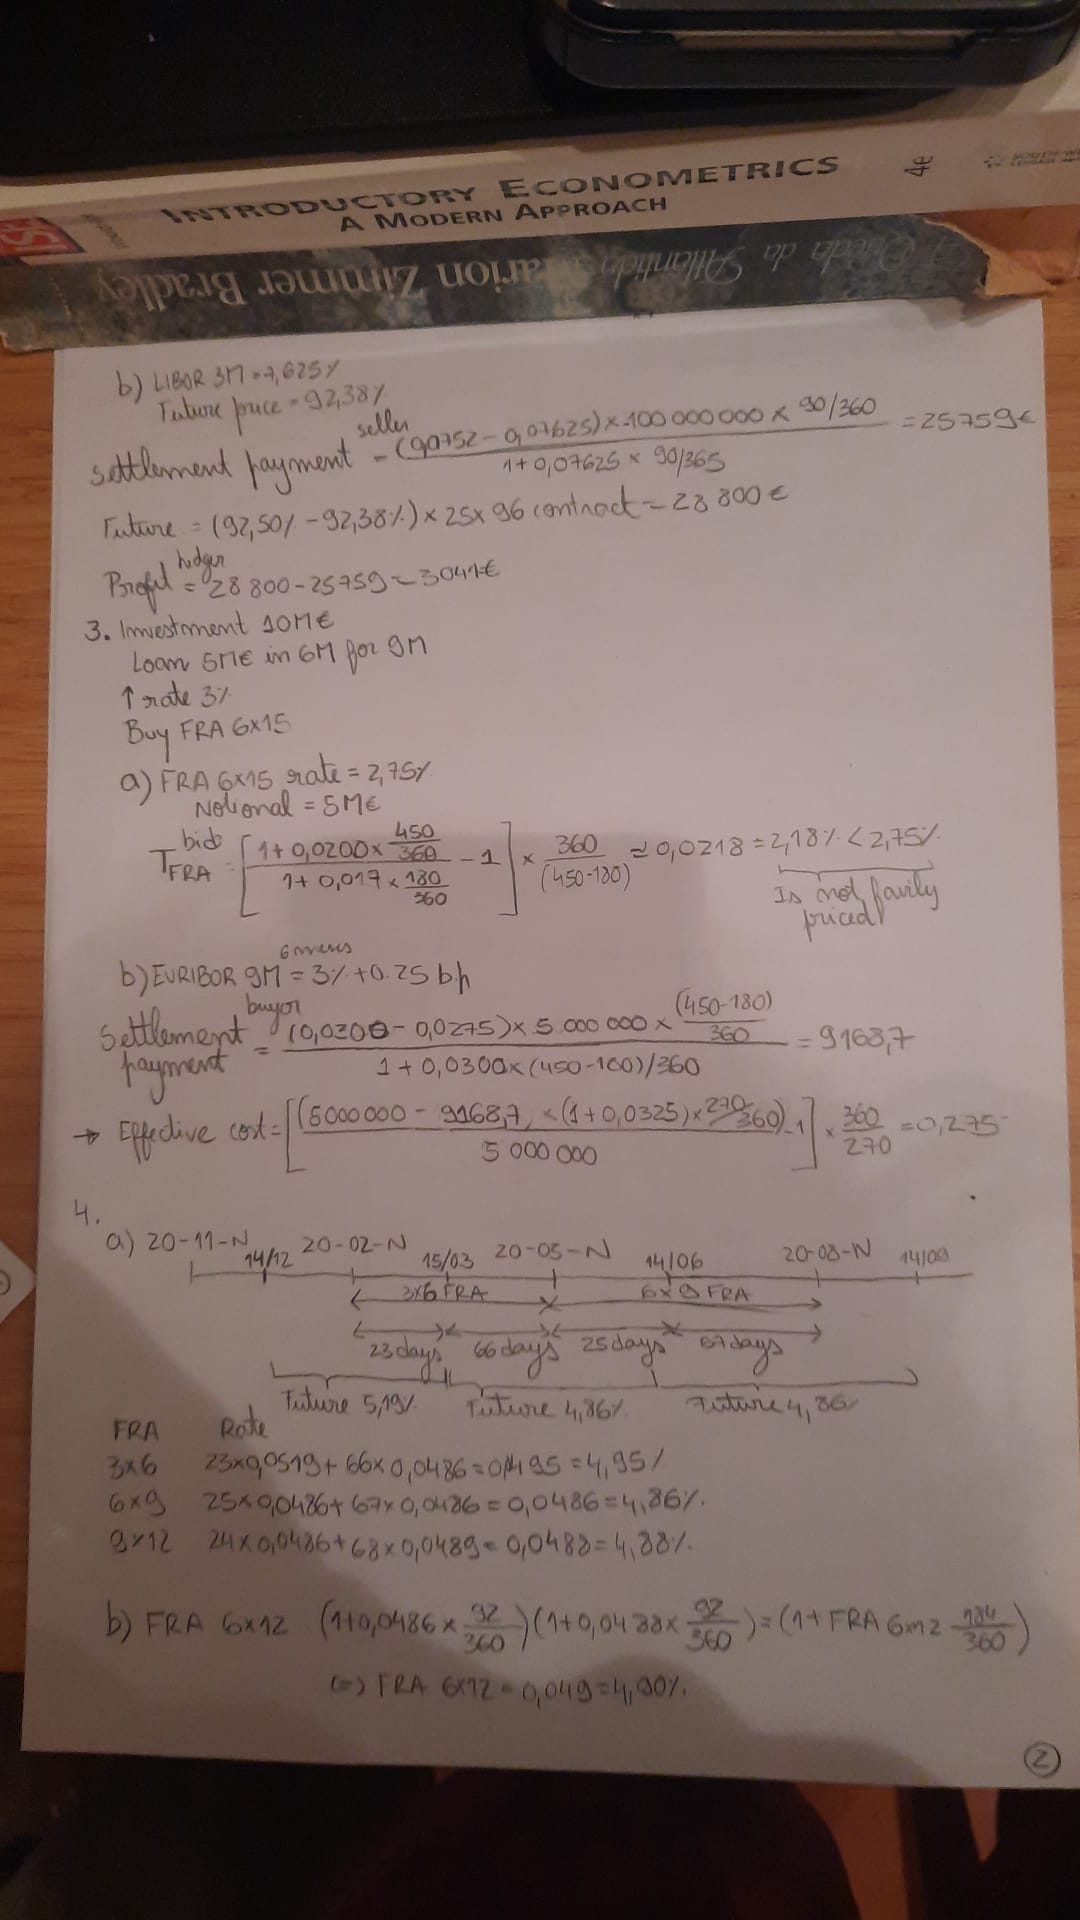 INTRODUCTORY ECONOMETRICS
A MODERN APPROACH
4e
A Queda da Atlântida Marion Zimmer Bradley
b) LIBOR 3M = 7,625%
Future price = 92,38%
settlement payment seller = (0,0752 - 0,07625) x -100 000 000 x 90/360 = 25759€
1 + 0,07625 x 90/365
Future = (92,50% - 92,38%) x 25 x 96 contract = 28 800 €
Profit hedger = 28 800 - 25759 = 3041€
3. Investment 10M€
Loan 5M€ in 6M for 9M
↑ rate 3%
Buy FRA 6x15
a) FRA 6x15 rate = 2,75%
Notional = 5M€
T bid FRA = [ 1 + 0,0200 x 450/360 / 1 + 0,017 x 180/360 - 1 ] x 360/(450-180) ≈ 0,0218 = 2,18% < 2,75%
Is not fairly
priced
6 meses
b) EURIBOR 9M = 3% + 0.25 b.p
Settlement payment buyer = (0,0300 - 0,0275) x 5 000 000 x (450-180)/360 = 9168,7
1 + 0,0300 x (450-180)/360
→ Effective cost = [ (5000 000 - 9168,7 x (1 + 0,0325) x 270/360) - 1 ] x 360/270 = 0,275
5 000 000
4.
a) 20-11-N 14/12 20-02-N 15/03 20-05-N 14/06 20-08-N 14/09
3x6 FRA 6x9 FRA
23 days 66 days 25 days 67 days
Future 5,19% Future 4,86% Future 4,86
FRA Rate
3x6 23x0,0519 + 66x0,0486 = 0,0495 = 4,95%
6x9 25x0,0486 + 67x0,0486 = 0,0486 = 4,86%.
9x12 24x0,0486 + 68x0,0489 = 0,0488 = 4,88%.
b) FRA 6x12 (1+0,0486 x 92/360)(1+0,0488 x 92/360) = (1 + FRA 6x12 184/360)
(=) FRA 6x12 = 0,049 = 4,90%.
2